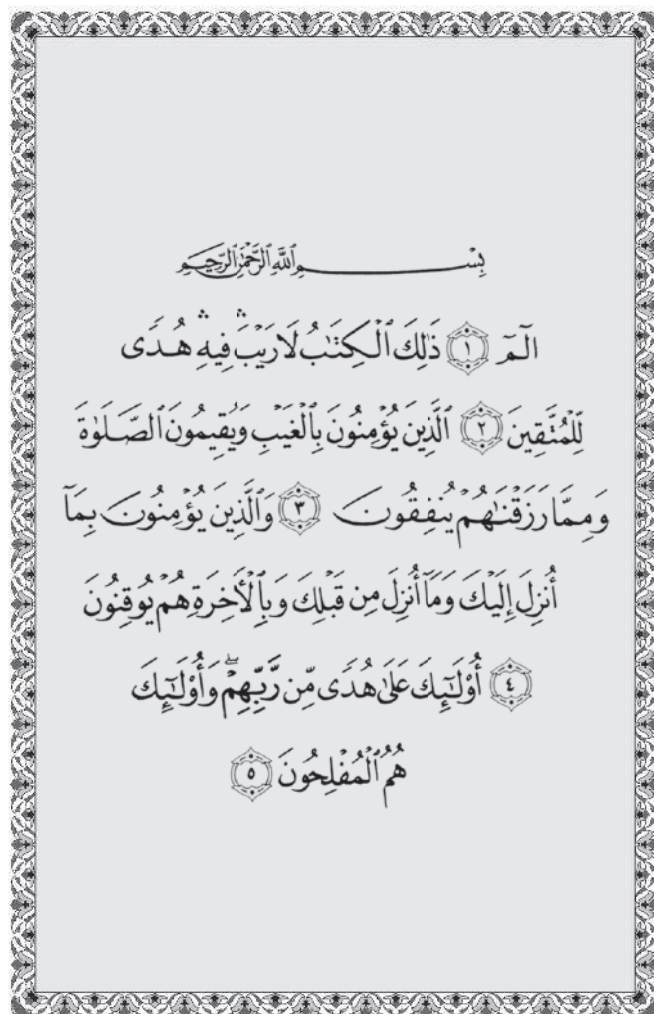 بِسْمِ ٱللَّهِ ٱلرَّحْمَٰنِ ٱلرَّحِيمِ
الٓمٓ ﴿١﴾ ذَٰلِكَ ٱلْكِتَٰبُ لَا رَيْبَ ۛ فِيهِ ۛ هُدًى
لِّلْمُتَّقِينَ ﴿٢﴾ ٱلَّذِينَ يُؤْمِنُونَ بِٱلْغَيْبِ وَيُقِيمُونَ ٱلصَّلَوٰةَ
وَمِمَّا رَزَقْنَٰهُمْ يُنفِقُونَ ﴿٣﴾ وَٱلَّذِينَ يُؤْمِنُونَ بِمَآ
أُنزِلَ إِلَيْكَ وَمَآ أُنزِلَ مِن قَبْلِكَ وَبِٱلْأَخِرَةِ هُمْ يُوقِنُونَ
﴿٤﴾ أُو۟لَٰٓئِكَ عَلَىٰ هُدًى مِّن رَّبِّهِمْ ۖ وَأُو۟لَٰٓئِكَ
هُمُ ٱلْمُفْلِحُونَ ﴿٥﴾